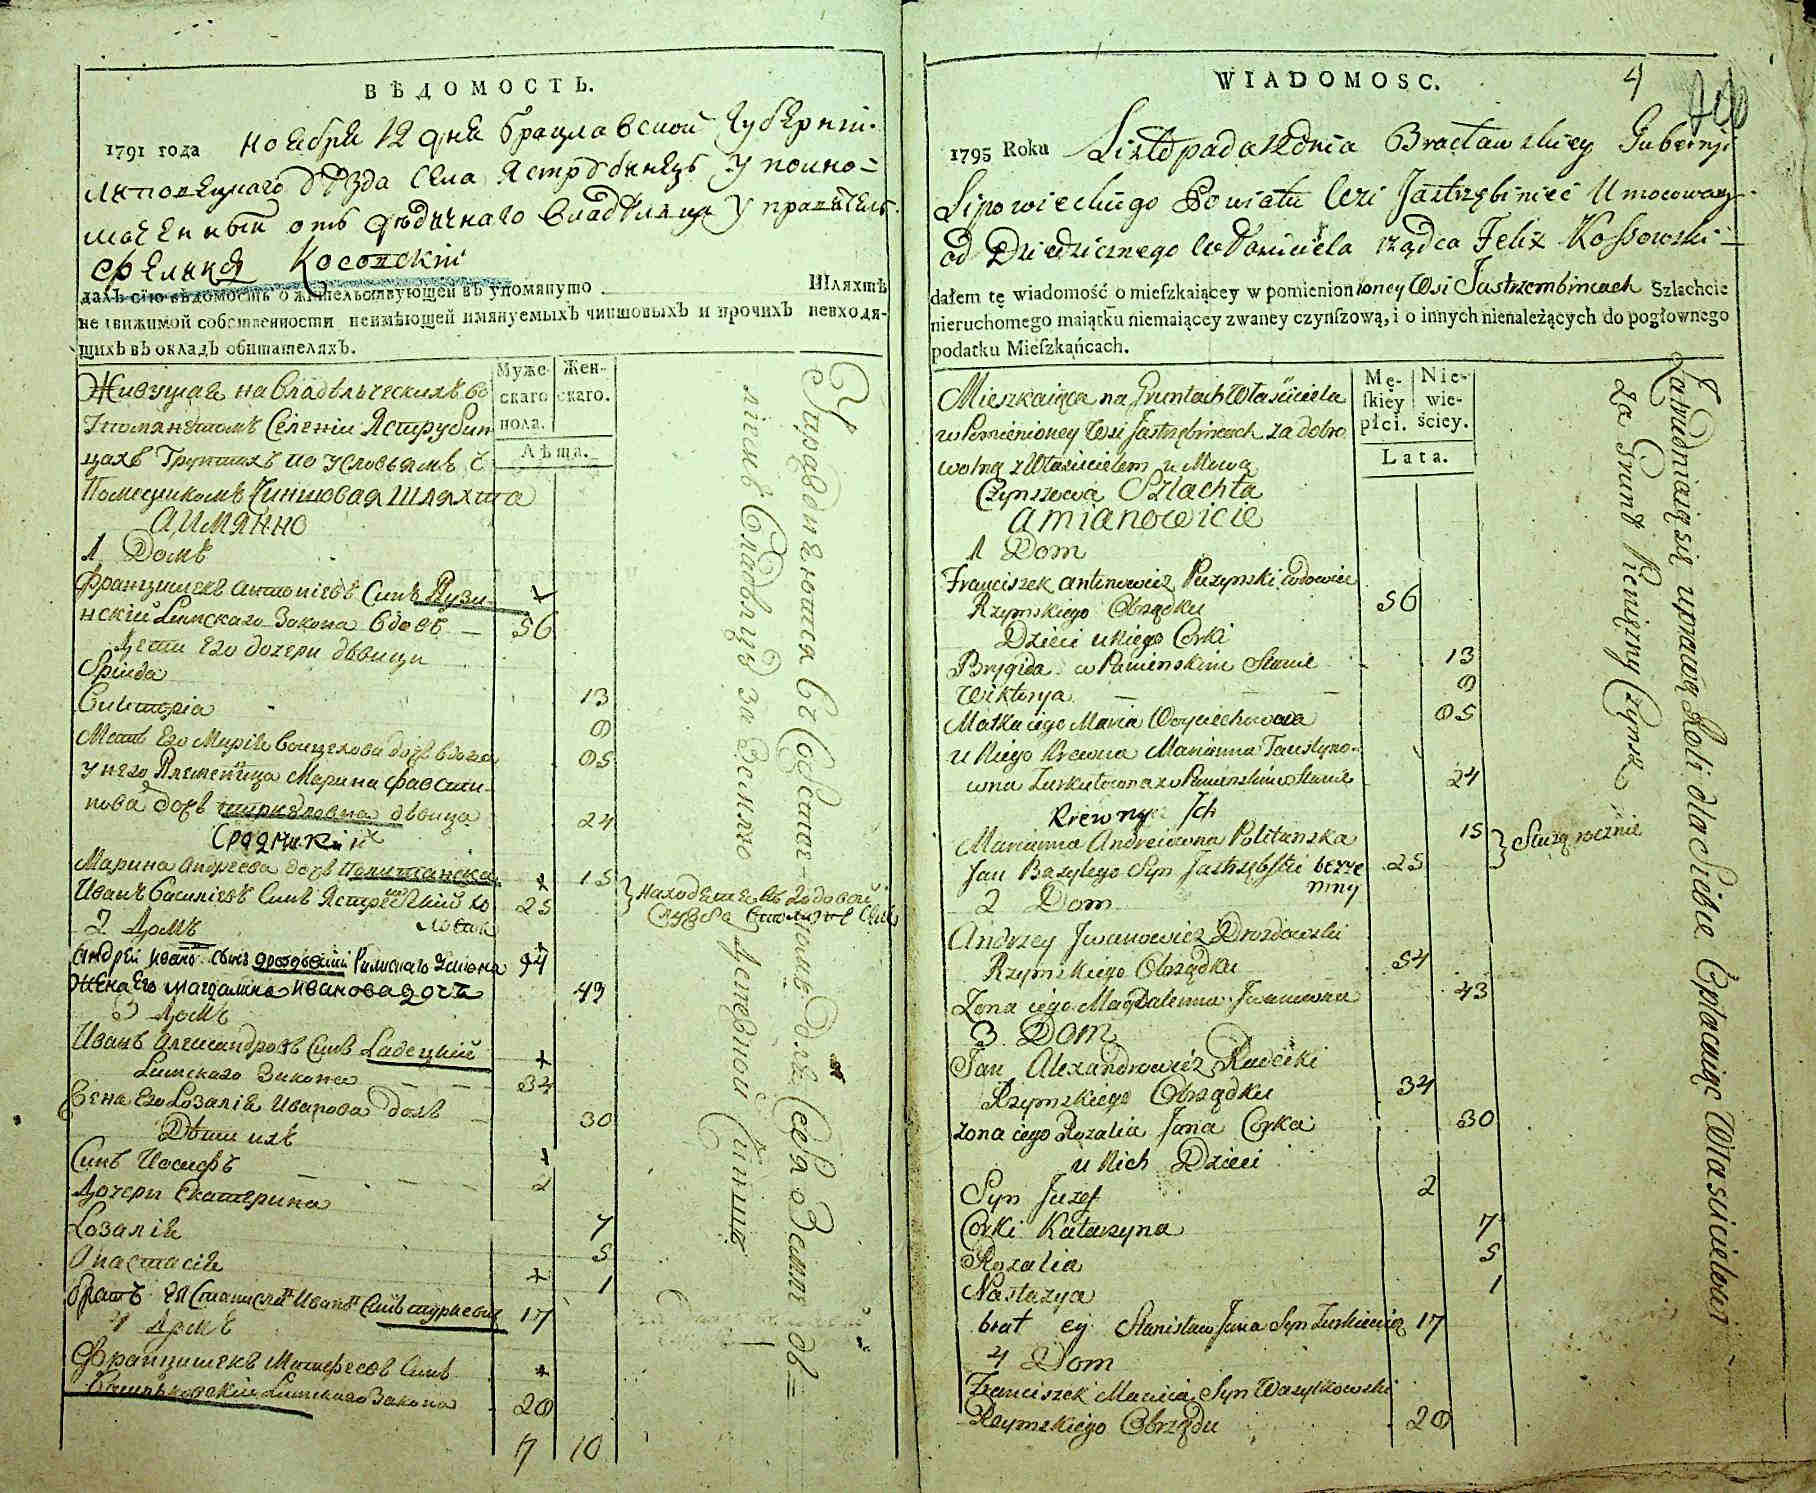 ВѢДОМОСТЬ.
1791 года Ноября 12 дня Брацлавской Губерніи.
Липовецкаго уѣзда села Яструбинецъ уполно=
моченный отъ дѣдичнаго владѣльца управитель
Феликсъ Косовскій
далъ сію вѣдомость о жительствующей въ упомянуто Шляхтѣ
недвижимой собственности неимѣющей имянуемыхъ чиншовыхъ и прочихъ невходя-
щихъ въ окладъ обитателяхъ.
Муже-
скаго
пола.
Жен-
скаго.
Лѣта.
Живущая на владѣльческихъ во
упомянутомъ селеніи Яструбин
цахъ Грунтахъ по условьямъ с
Помещикомъ Чиншовая шляхта
а имянно
1 Домъ
Францишекъ Антоніевъ сынъ Пузи
нскій Римскаго Закона вдовъ — 56
Дети его дочери дѣвици
Бригида 13
Викторія 9
Мать его Марія Войцехова дочь вдова 95
у него Племеница Марина Фавсти-
нова дочь дѣвица 24
Сродники ихъ
Марина Андреева дочь Политанска 15
Иванъ Василіевъ сынъ Ястрембскій хо 25
лостъ
Находятся въ годовой
службѣ
2 Домъ
Андрей Ивановъ сынъ Дроздовскій Римскаго Закона 54
Жена его Магдалина Иванова дочь 43
3 Домъ
Иванъ Александровъ сынъ Радецкій
Римскаго Закона 34
Жена его Розалія Иванова дочь 30
Дѣти ихъ
Сынъ Иосифъ 2
Дочери Екатерина 7
Розалія 5
Анастасія 1
братъ ея Станиславъ Ивановъ сынъ Туркевич 17
4 Домъ
Францишекъ Матфеевъ сынъ
Васильковскій Римскаго Закона 29
7 10
Упраждняются въ
для себя за
Землю
WIADOMOSC.
4
1795 Roku Listopada 12 dnia Bracławskiey Gubernji
Lipowieckiego Powiatu Wsi Jastrzębiniec Umocowany
od Dziedzicznego Właściciela rządca Felix Kossowski
dałem tę wiadomość o mieſzkaiącey w pomienionioney Wsi Jastrzembincach Szlachcie
nieruchomego maiątku niemaiącey zwaney czynſzową, i o innych nienależących do pogłownego
podatku Mieſzkańcach.
Mę-
ſkiey
płci.
Nie-
wie-
ściey.
Lata.
Mieszkaiąca na Gruntach Właściciela
w Pomienioney Wsi Jastrzębincach za dobro
wolną z Właścicielem u Mową
Czynszowa Szlachta
a mianowicie
1 Dom
Franciszek Antonowicz Puzynski wdowiec
Rzymskiego Obrządku 56
Dzieci u Niego Corki
Brygida w Panienskim Stanie 13
Wiktorya — — 9
Matka iego Maria Woyciechowna 95
u Niego Krewna Marianna Faustyno-
wna w Panienskim Stanie 24
Krewnye Ich
Marianna Andreiowna Politanska 15
Jan Bazylego Syn Jastrzębski bezże 25
nny
Służą rocznie
2 Dom
Andrzey Iwanowicz Drozdowski
Rzymskiego Obrządku 54
Zona iego Magdalenna Iwanowna 43
3 Dom
Jan Alexandrowicz Radecki
Rzymskiego Obrządku 34
zona iego Rozalia Jana Corka 30
u Nich Dzieci
Syn Juzef 2
Corki Katarzyna 7
Rozalia 5
Nastazya 1
brat ey Stanisław Jana Syn Turkiewicz 17
4 Dom
Franciszek Macieia Syn Wasylkowski
Rzymskiego Obrządu 29
Zatrudniaią się uprawą Roli dla Siebie Opłacaiąc Właścicielowi
za Grunt Pieniężny Czynsz